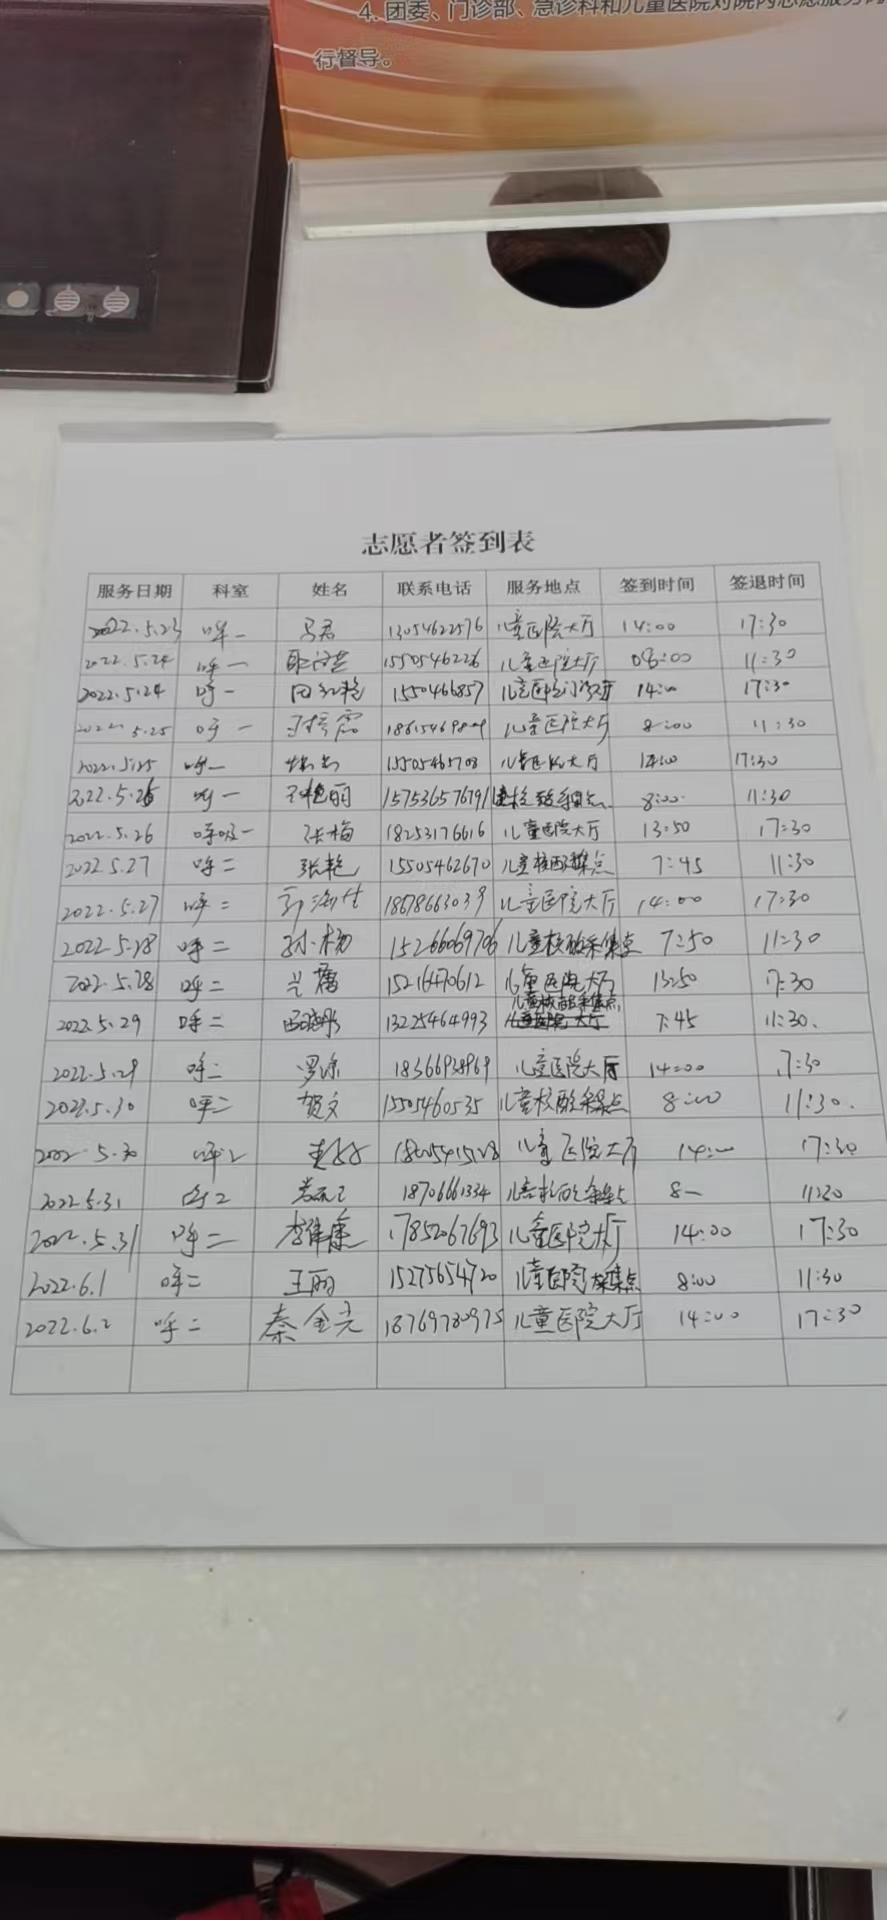 4.团委、门诊部、急诊科和儿童医院对院内志愿服务
行督导。
志愿者签到表
服务日期 科室 姓名 联系电话 服务地点 签到时间 签退时间
2022.5.23 呼一 马君 13054622576 儿童医院大厅 14:00 17:30
2022.5.24 呼一 15505546226 儿童医院大厅 08:00 11:30
2022.5.24 呼一 1550466857 14:00 17:30
2022.5.25 呼一 儿童医院大厅 8:00 11:30
2022.5.25 呼一 15505465708 儿童医院大厅 14:00 17:30
2022.5.26 呼一 15753657679 8:00 11:30
2022.5.26 呼吸一 张梅 18253176616 儿童医院大厅 13:50 17:30
2022.5.27 呼二 张艳 15505462670 儿童核酸采集点 7:45 11:30
2022.5.27 呼二 18678663039 儿童医院大厅 14:00 17:30
2022.5.28 呼二 孙杨 15266069706 儿童核酸采集点 7:50 11:30
2022.5.28 呼二 15216470612 儿童医院大厅 13:50 17:30
2022.5.29 呼二 13225464993 儿童核酸采集点 7:45 11:30.
2022.5.29 呼二 18366938969 儿童医院大厅 14:00 17:30
2022.5.30 呼二 贺文 15505460535 儿童核酸采集点 8:00 11:30.
2022.5.30 呼2 儿童医院大厅 14:00 17:30
2022.5.31 呼2 18706661334 8— 11:30
2022.5.31 呼二 李伟康 17852067693 儿童医院大厅 14:00 17:30
2022.6.1 呼二 王丽 15275654720 8:00 11:30
2022.6.2 呼二 秦金光 18769780975 儿童医院大厅 14:00 17:30